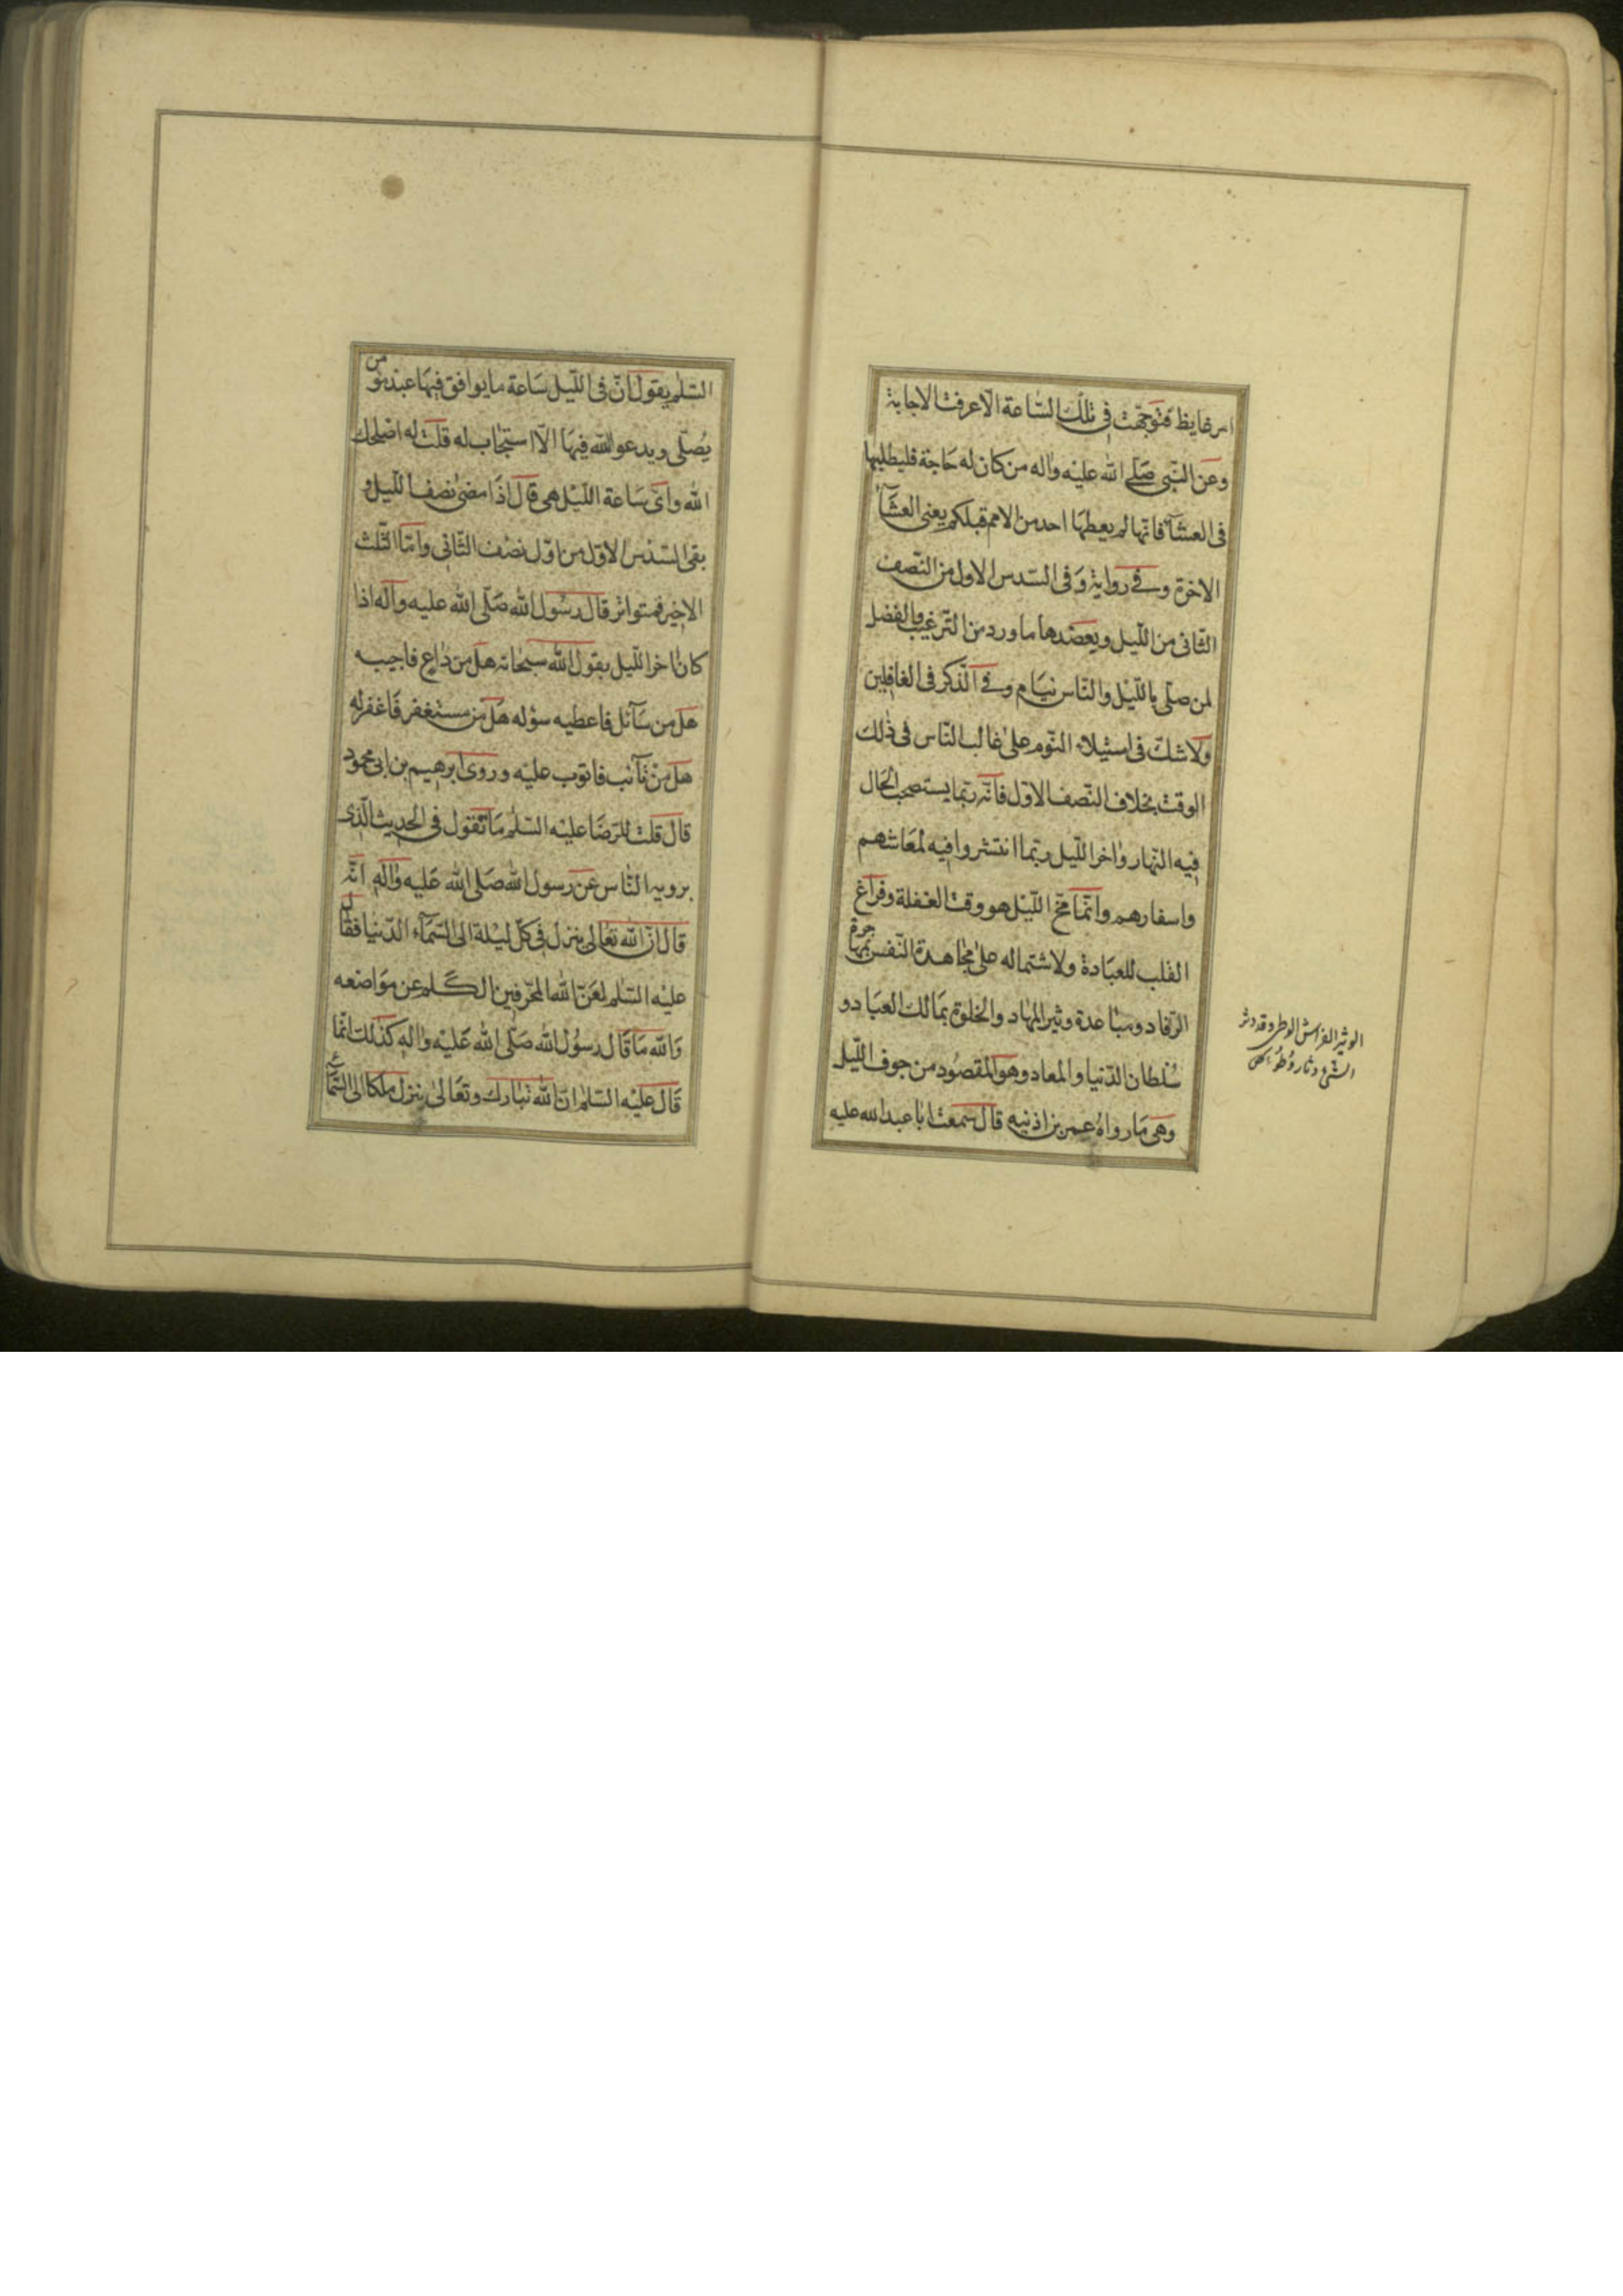 امر غايظ فتوجّهت فى تلك السّاعة الّا عرفت الاجابة
وعن النّبى صلّى الله عليه واله من كان له حاجة فليطلبها
فى العشآء فانّها لم يعطها احد من الامم قبلكم يعنى العشآء
الاخرة وفى رواية وفى السّدس الاول من النّصف
الثّانى من اللّيل ويعضدها ما ورد من التّرغيب والفضل
لمن صلّى باللّيل والنّاس نيام وفى الذّكر فى الغافلين
ولا شكّ فى استيلاء النّوم على غالب النّاس فى ذلك
الوقت بخلاف النّصف الاوّل فانّه ربّما يستصحب الحال
فيه النّهار واخر اللّيل ربّما انتشروا فيه لمعاشهم
واسفارهم وانّما مخّ اللّيل هو وقت الغفلة وفراغ
القلب للعبادة ولاشتماله على مجاهدة النّفس بمهاجرة
الرّقاد ومباعدة وثير المهاد والخلوة بمالك العباد و
سُلطان الدّنيا والمعاد وهو المقصود من جوف اللّيل
وهى ما رواهُ عمر بن اذنيه قال سمعت ابا عبد الله عليه
الوثير الفراش الوطى وقد وثر
الشئ وثار وطؤ
السّلم يقول انّ فى اللّيل ساعة ما يوافق فيها عبد مؤمن
يُصلّى ويدعو الله فيها الّا استجاب له قلت له اصلحك
الله واىّ ساعة اللّيل هى قال اذا مضى نصف اللّيل و
بقى السّدس الاوّل من اوّل نصف الثّانى وامّا الثّلث
الاخير فمتواتر قال رسُول الله صلّى الله عليه واله اذا
كان اخر اللّيل يقول الله سبحانه هل من داع فاجيبه
هل من سآئل فاعطيه سؤله هل من مستغفر فاغفر له
هل من تآئب فاتوب عليه وروى ابرهيم بن ابى محمود
قال قلت للرّضا عليه السّلم ما تقول فى الحديث الّذى
يرويه النّاس عن رسول الله صلّى الله عليه واله انّه
قال انّ الله تعالى ينزل فى كلّ ليلة الى السّمآء الدّنيا فقال
عليه السّلم لعن الله المحرّفين الكلم عن مواضعه
والله ما قال رسُول الله صلّى الله عليه واله كذلك انّما
قال عليه السّلم انّ الله تبارك وتعالى ينزل ملكا الى السّمآء